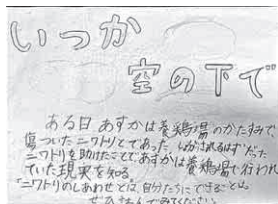 いつか
空の下で
ある日 あすかは養鶏場のかたすみで
傷ついたニワトリとであった。しょ分されるはずだった
ニワトリを助けたことで、あすかは養鶏場で行われ
ていた現実を知る。
「ニワトリのしあわせとは、自分たちにできることは。
ぜひ読んでみてください